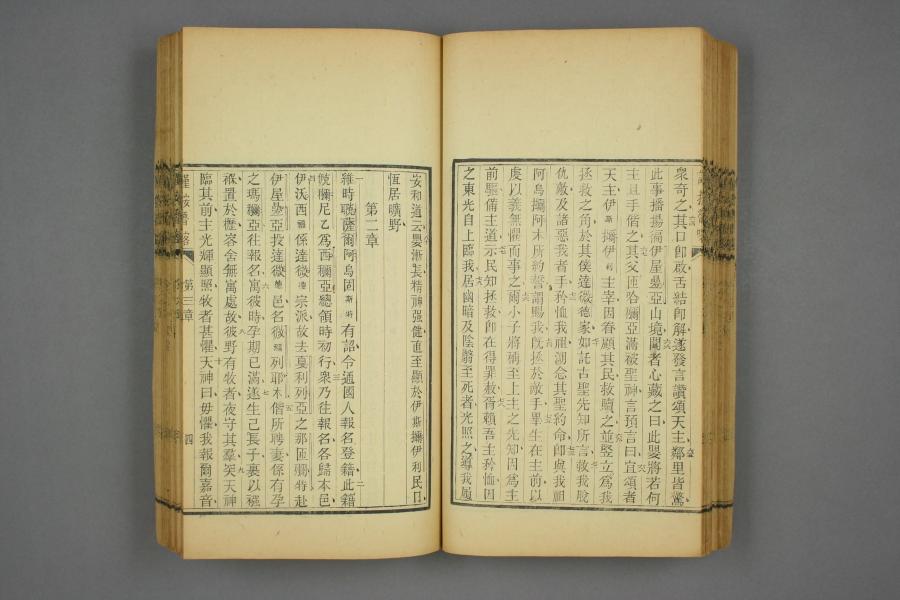 衆奇之其口卽啟舌結卽解遂發言讚頌天主鄰里皆驚
此事播揚徧伊屋疊亞山境聞者心藏之曰此嬰將若何
主且手偕之其父匝咎彌亞滿被聖神言預言曰宜頌者
天主伊斯摛伊利主宰因眷顧其民救贖之並竪立爲我
拯救之角於其僕達微德家如託古聖先知所言救我脫
仇敵及諸惡我者手矜恤我祖迦念其聖約命卽與我祖
阿烏摛阿木所約誓謂賜我旣拯於敵手畢生在主前以
虔以義無懼而事之爾小子將稱至上主之先知因爲主
前驅備主道示民知拯救卽在得罪赦胥賴吾主矜恤因
之東光自上臨我居幽暗及陰翳至死者光照之導我履
安和道云嬰漸長精神强健直至顯於伊斯摛伊利民日
恆居曠野
第二章
維時 薩爾阿烏固斯特有詔令通國人報名登籍此籍
 尼乙爲西 亞總領時初行衆乃往報名各歸本邑
伊沃西福係達微德宗派故去戛利列亞之那匝 特赴
伊屋疊亞投達微德邑名微福列耶木偕所聘妻係有孕
之瑪 亞往報名寓彼時孕期已滿遂生己長子裹以襁
褓置於櫪客舍無寓處故彼野有牧者夜守其羣矣天神
臨其前主光輝顯照牧者甚懼天神曰毋懼我報爾嘉音
第二章
四